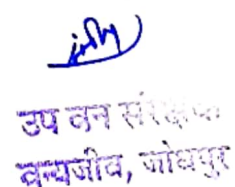 उप वन संरक्षक
वन्यजीव, जोधपुर